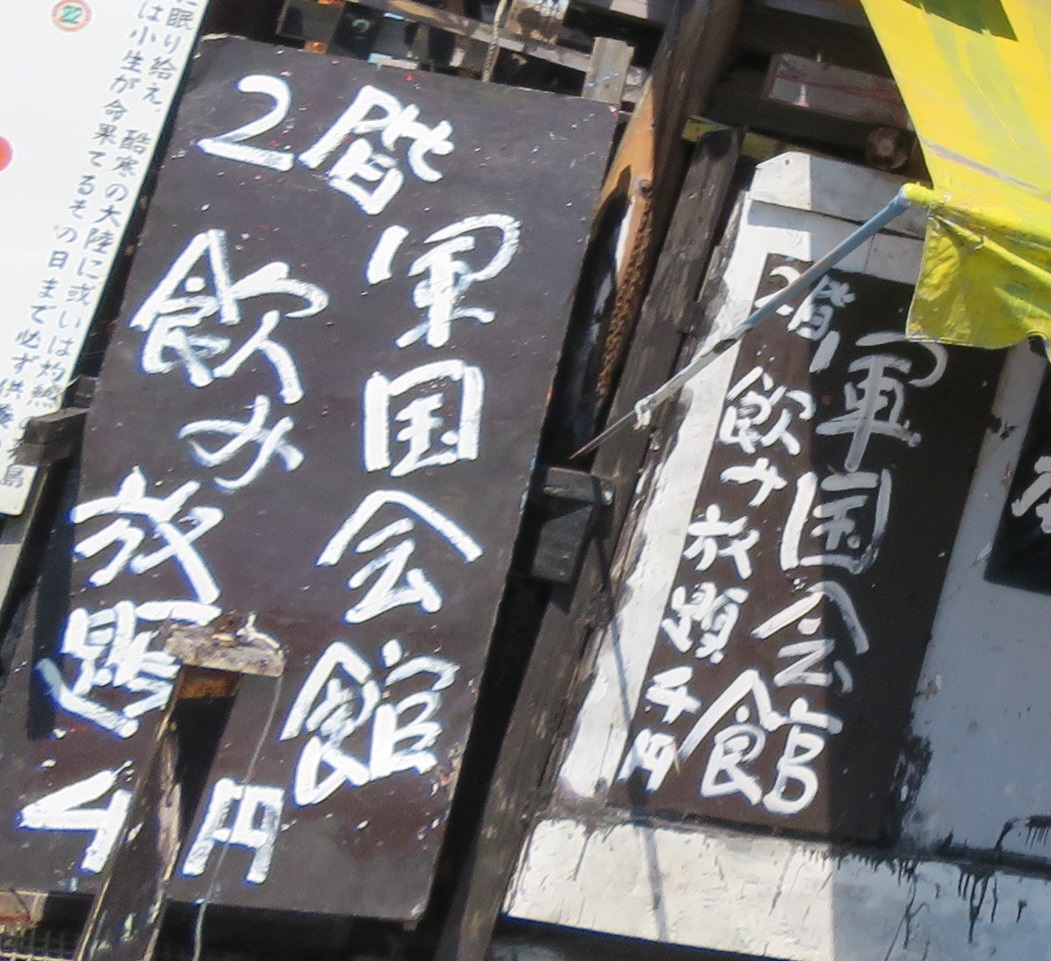 2階
軍国会館
飲み放題
千円
2階
軍国会館
飲み放題千円
眠り給え、酷寒の大陸に或いは灼熱
は小生が命果てるその日まで必ず供養
島
22